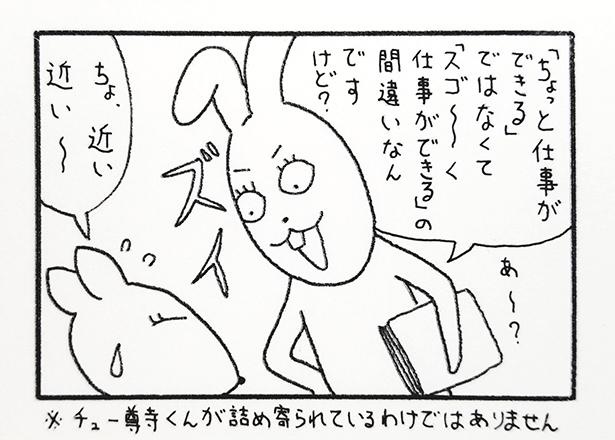 「ちょっと仕事が
できる」
ではなくて
「スゴ〜〜く
仕事ができる」の
間違いなん
です
けど?
あ〜?
ズイ
ちょ、近い
近い〜
※チュー尊寺くんが詰め寄られているわけではありません